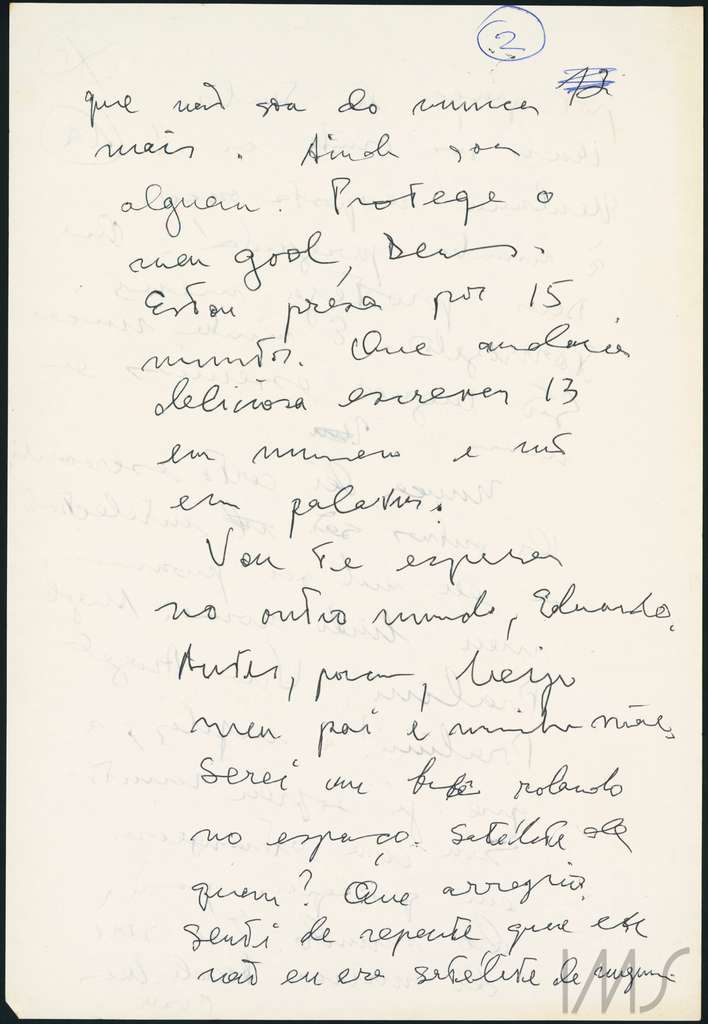 2
que não sou do nunca 12
mais. Ainda sou
alguem. Protege o
meu gool, Deus.
Estou présa por 15
mundos. Que audacia
deliciosa escrever 13
em numero e não
em palavras.
Vou te esperar
no outro mundo, Eduardo.
Antes, porem, beijo
meu pai e minha mãe,
Serei um bebê rolando
no espaço. Satélite de
quem? Que arrepio.
Senti de repente que
não eu era satélite de ninguem.
IMS